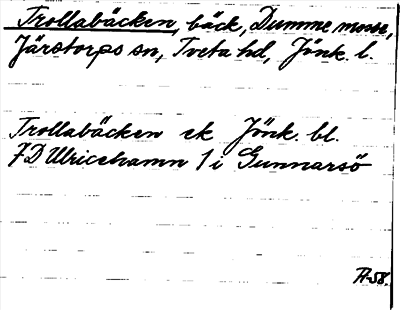 Trollabäcken, bäck, Dumme mosse,
Järstorps sn, Tveta hd, Jönk. l.
Trollabäcken ek Jönk. bl.
7D Ulricehamn 1 i Gunnarsö
A-58.